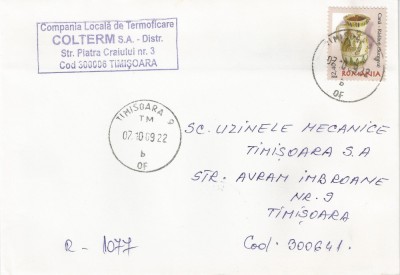 Compania Locală de Termoficare
COLTERM S.A. - Distr.
Str. Piatra Craiului nr. 3
Cod 300006 TIMIŞOARA
ROMANIA
TIMIŞOARA 9
TM
07.10.09.22
b
OF
SC. UZINELE MECANICE
TIMIŞOARA S.A
STR: AVRAM IMBROANE
NR. 9
TIMIŞOARA
Cod: 300641.
R - 1077